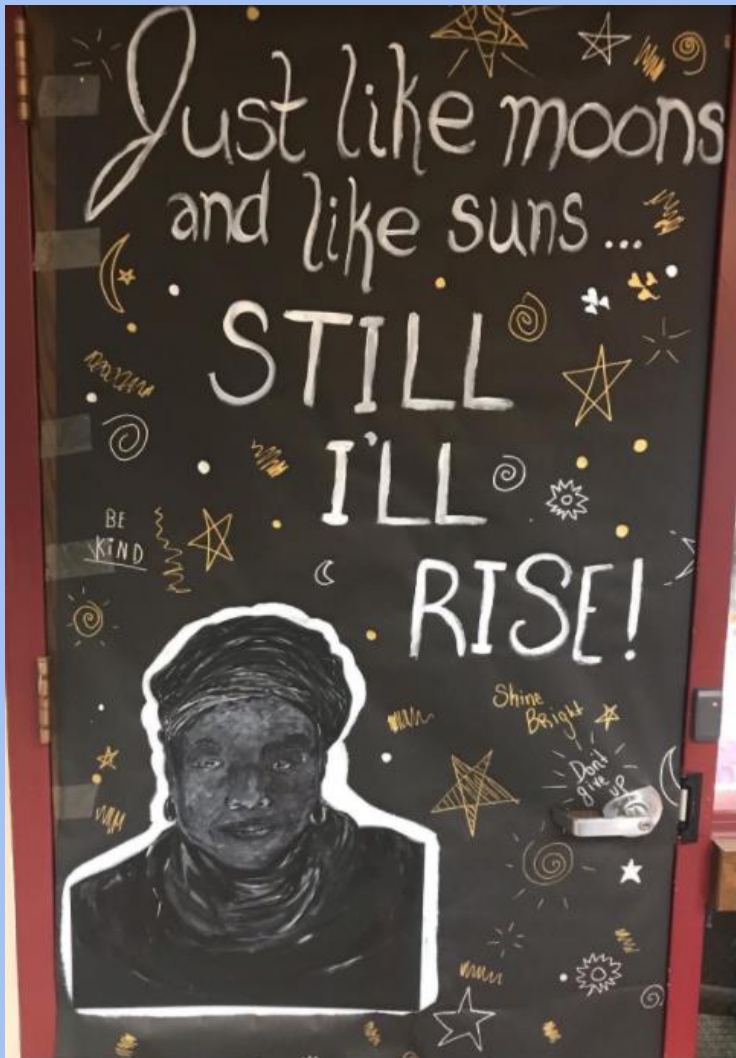 Just like moons
and like suns...
STILL
I'LL
RISE!
BE
KIND
Shine
Bright
Don't
give
up